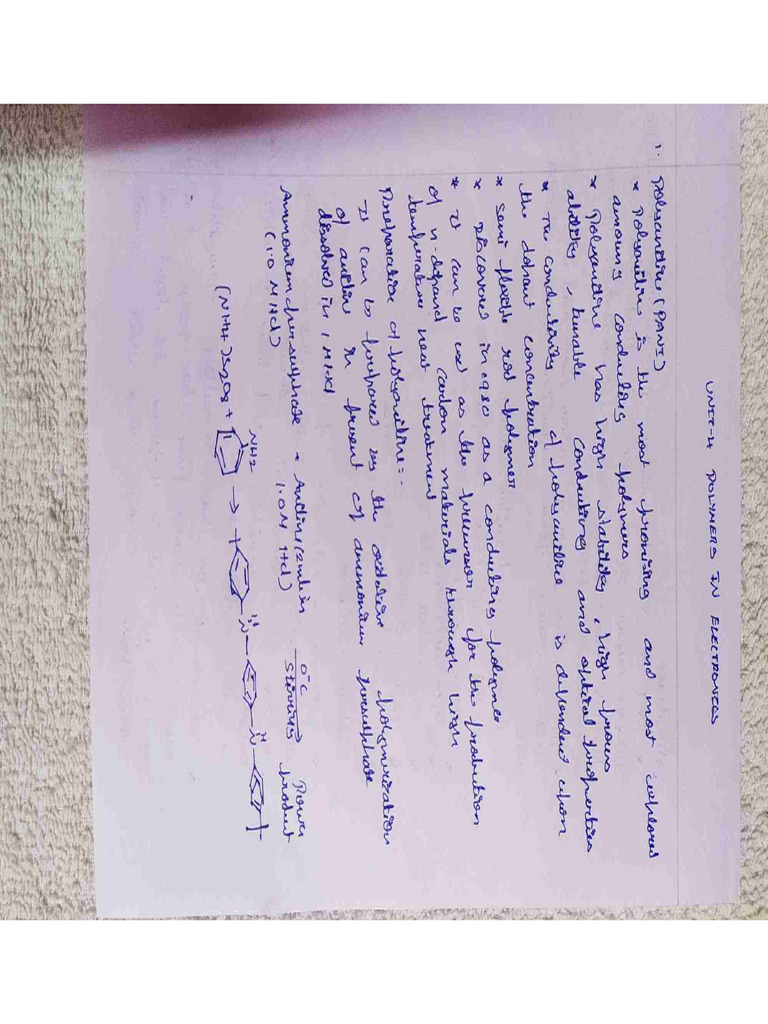 UNIT-4 POLYMERS IN ELECTRONICS
1. Polyaniline (PANI)
* Polyaniline is the most promising and most explored
among conducting polymers
* Polyaniline has high stability, high process
ability, tunable conducting and optical properties
* The conductivity of polyaniline is dependent upon
the dopant concentration
* Semi flexible rod polymer
* Discovered in 1980 as a conducting polymer
* It can be used as the precursor for the production
of n-doped carbon materials through high
temperature heat treatment
Preparation of polyaniline:-
It can be prepared by the oxidative polymerization
of aniline in present of ammonium persulphate
dissolved in 1 M HCl
Ammonium persulphate + Aniline (2ml in 0°C
(1.0 M HCl) 1.0M HCl) Stirring product
(NH4)2S2O8 + NH2 → H N H N